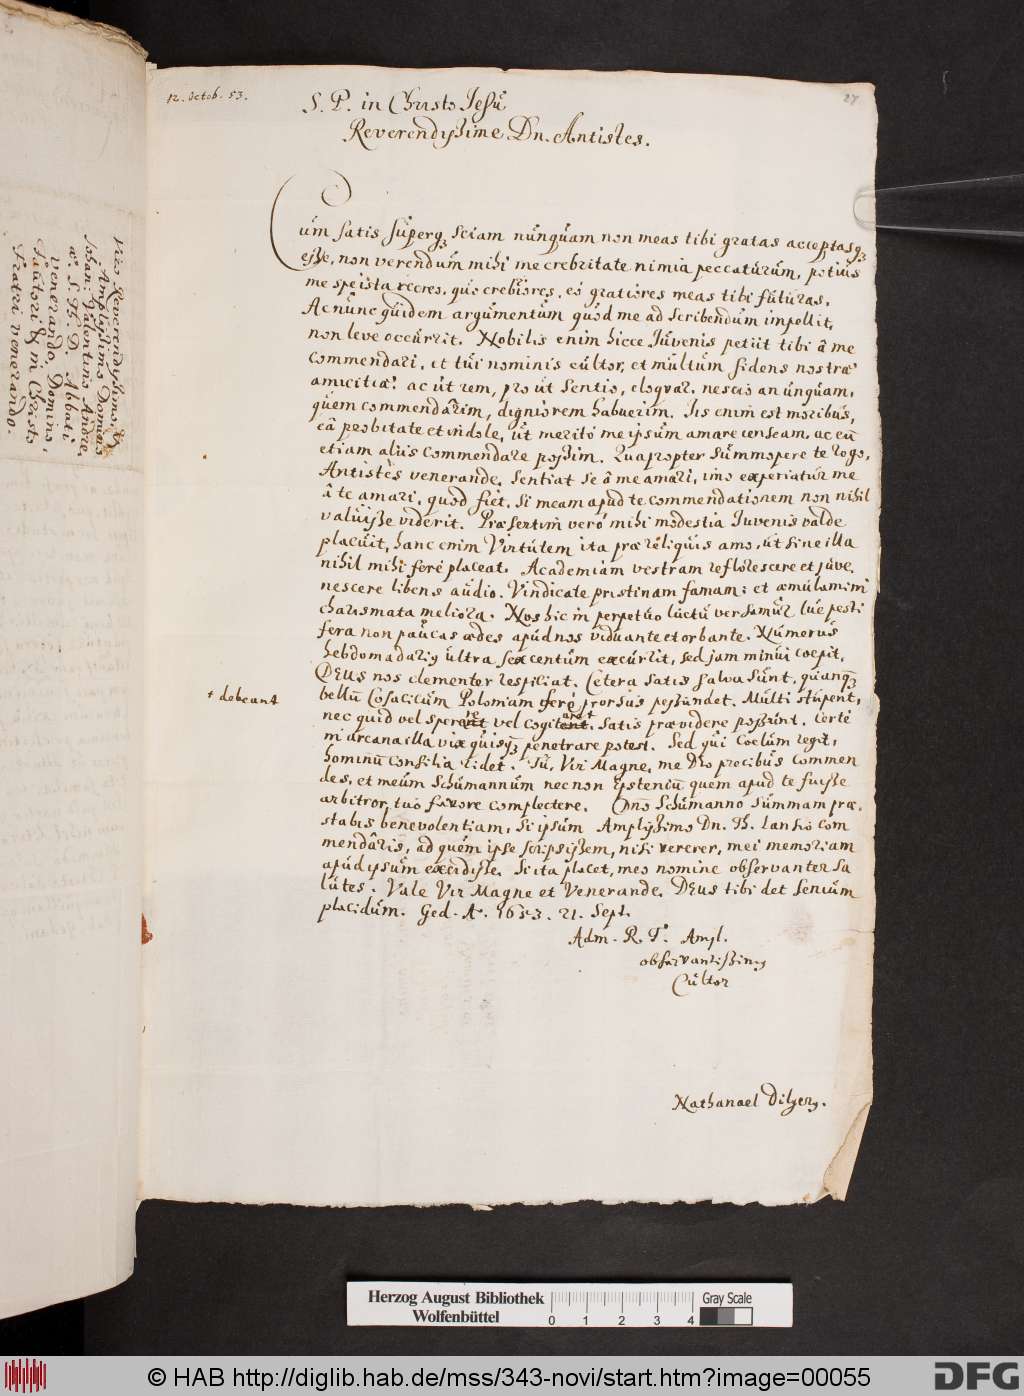 12. Octob. 53.
27
S. P. in Christo Jesu
Reverendissime Dn. Antistes.
Cum satis superq; sciam nunquam non meas tibi gratas acceptasq;
esse, non verendum mihi me crebritate nimia peccaturum, potius
me spe ista crebriores, eo gratiores meas tibi futuras.
Ac nunc quidem argumentum quod me ad scribendum impulit,
non leve occurrit. Nobilis enim hicce Juvenis petiit tibi â me
commendari, et tui nominis cultor, et multum fidens nostræ
amicitiæ: ac ut rem, prout sentio, eloquar, nescio an unquam,
quem commendârim, digniorem habuerim. Iis enim est moribus,
eâ probitate et indole, ut meritò me ipsum amare censeam, ac eũ
etiam aliis commendare possim. Quapropter summopere te rogo,
Antistes venerande, sentiat se â me amari, imo experiatur me
â te amari, quod fiet, si meam apud te commendationem non nihil
valuisse viderit. Præsertim verò mihi modestia Juvenis valde
placuit, hanc enim Virtutem ita præ reliquis amo, ut sine illa
nihil mihi ferè placeat. Academiam vestram reflorescere et juve,
nescere libens audio. Vindicate pristinam famam: et æmulamini
charismata meliora. Nos hic in perpetuo luctu versamur lue pesti
fera non paucas ædes apud nos viduante et orbante. Numerus
hebdomadariq ultra sexcentum excurrit, sed jam minui coepit.
DEUS nos clementer respiciat. Cetera satis salva sunt, quanq;
bellũ Cosacicum Poloniam ferè prorsus pessundet. Multi stupent,
nec quid vel sperare vel cogitare + satis prævidere possunt. Certè
† debeant
in arcana illa vix quisq; penetrare potest. Sed qui Coelum regit,
hominũ consilia ridet. Tu, Vir Magne, me Deo precibus commen
des, et meum Schumannum nec non quem apud te fuisse
arbitror, tuo favore complectere. Dno Schumanno summam præ
stabis benevolentiam, si ipsum Amplissimo Dn. Th. Lansio com
mendâris, ad quem ipse scripsissem, nisi vererer, mei memoriam
apud ipsum excidisse. Si ita placet, meo nomine observanter sa
lutes. Vale Vir Magne et Venerande. DEUS tibi det senium
placidum. Ged. Aº. 1653. 21. Sept.
Adm. R. T. Ampl.
observantissimq
Cultor
Nathanael Dilgerq.
Viro Reverendissimo, &
Amplissimo Domino
Johan: Valentino Andreæ,
S. Th. D. Abbati
venerando, Domino,
Fautori & in Christo
Fratri venerando.
Herzog August Bibliothek
Wolfenbüttel
0 1 2 3 4
Gray Scale
© HAB http://diglib.hab.de/mss/343-novi/start.htm?image=00055
DFG